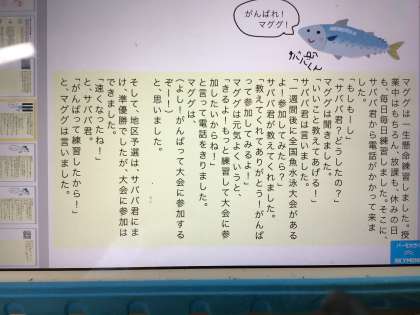 がんばれ！
マググ！
サババくん
マググは一生懸命練習しました。授
業中はもちろん、放課も、休みの日
も、毎日毎日練習しました。そこに、
サババ君から電話がかかって来ま
した。
「もしもーし」
「サババ君？どうしたの？」
マググは聞きました。
「いいこと教えてあげる！」
サババ君は言いました。
「一週間後に全国魚水泳大会がある
よ！参加してみたら？」
サババ君が教えてくれました。
「教えてくれてありがとう！がんば
って参加してみるよ！」
マググは元気よくいうと、
「きるよ！もっと練習して大会に参
加したいからね！」
と言って電話をきりました。
マググは、
（よし！がんばって大会に参加する
ぞー！）
と、思いました。
そして、地区予選は、サババ君にま
け、準優勝でしたが、大会に参加は
できました。
「速くなったね！」
と、サババ君。
「がんばって練習したから！」
と、マググは言いました。
SKYMENU